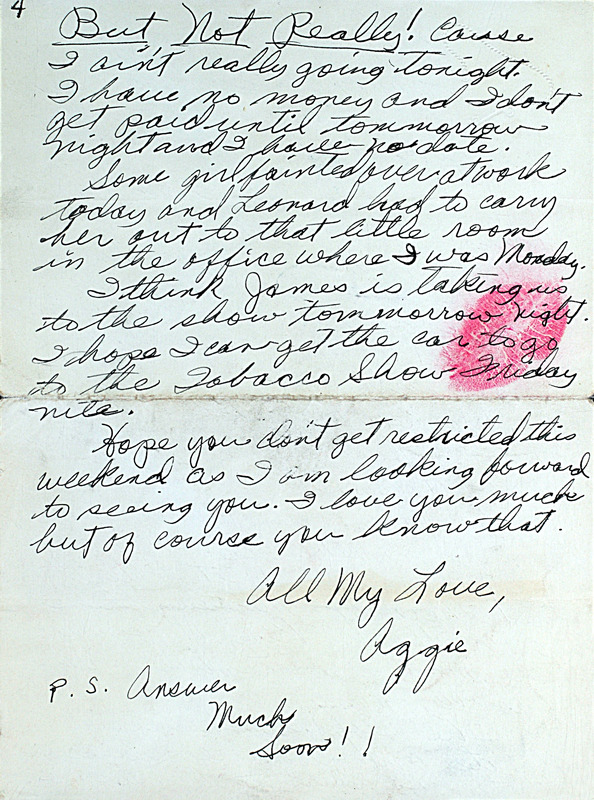 4
But Not Really! Cause
I ain't really going tonight.
I have no money and I don't
get paid until tommorrow
night and I have no date.
Some girl fainted over at work
today and Leonard had to carry
her out to that little room
in the office where I was Monday.
I think James is taking us
to the show tommorrow night.
I hope I can get the car to go
to the Tobacco Show Friday
nite.
Hope you don't get restricted this
weekend as I am looking forward
to seeing you. I love you much
but of course you know that.
All My Love,
Aggie
P. S. Answer
Much
Soon!!